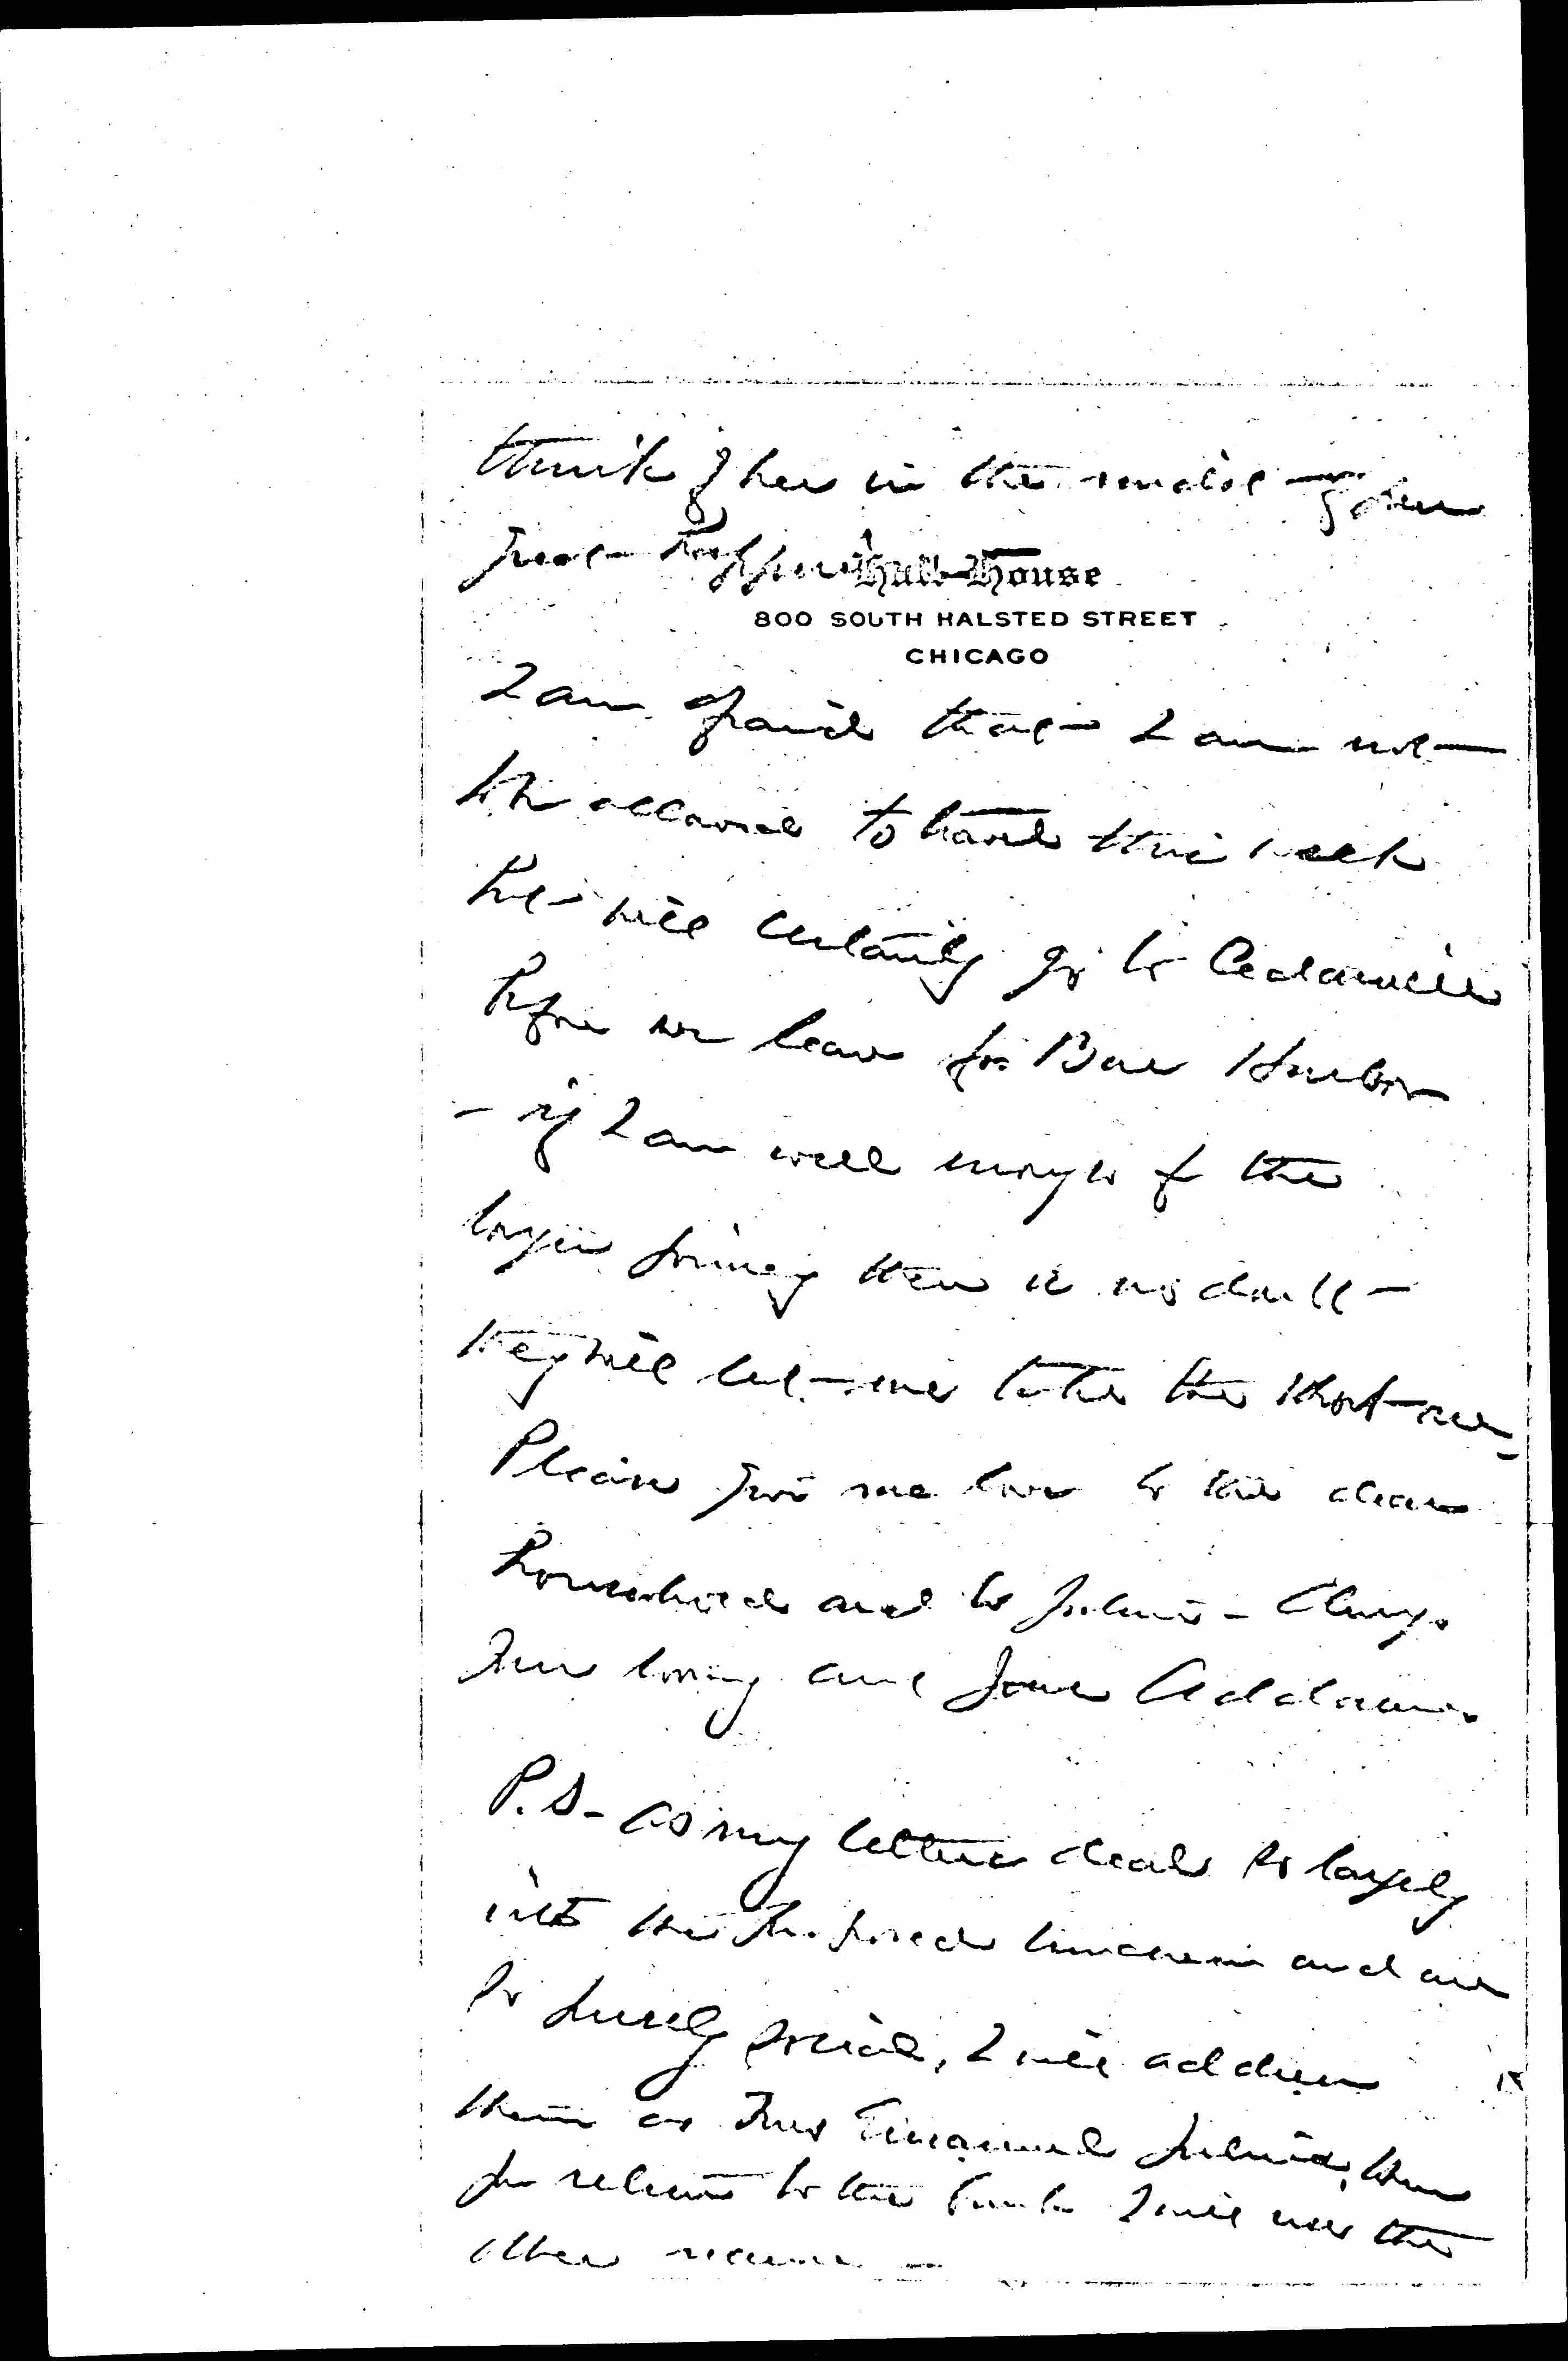 think of her in the midst of her
great happiness
Hull-House
800 SOUTH HALSTED STREET
CHICAGO
I am afraid that I am not
to be allowed to travel this week
but will certainly go to Cedarville
before we leave for Bar Harbor
- if I am well enough for the
longer journey there is no doubt
they will let me take the short one
Please give me love to the dear
household and to Julius - Always
Your loving aunt Jane Addams.
P.S. - As my letters deal so largely
with the proposed luncheon and are
so purely social, I will address
them as Mrs Emanuel Julius, when
you return to the bank I will use the
other name -